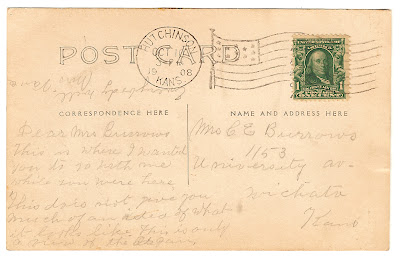 POST CARD
HUTCHINSON
OCT
1908
KANS.
CORRESPONDENCE HERE
NAME AND ADDRESS HERE
Dear Mrs Burrows
This is where I wanted
you to go with me
while you were here
This does not give you
much of an idea of what
it looks like. This is only
a view of the
Mrs C E Burrows
1153
University av-
Wichata
Kans